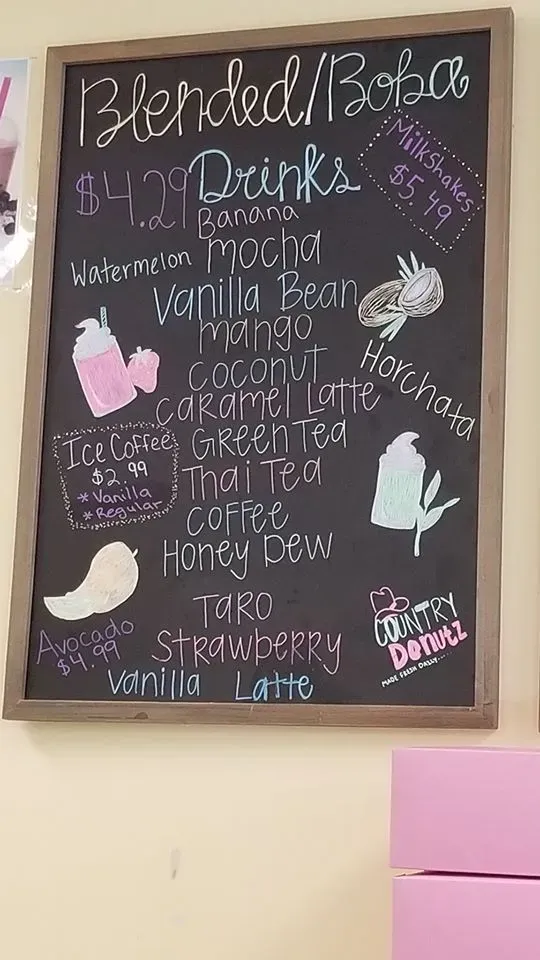 Blended/Boba
Milkshakes
$5.49
$4.29 Drinks
Banana
Watermelon mocha
Vanilla Bean
mango
coconut
Horchata
caramel Latte
Ice Coffee
$2.99
* Vanilla
* Regular
Green Tea
Thai Tea
coffee
Honey Dew
Taro
Avocado
$4.99
Strawberry
Vanilla Latte
COUNTRY
Donutz
MADE FRESH DAILY....